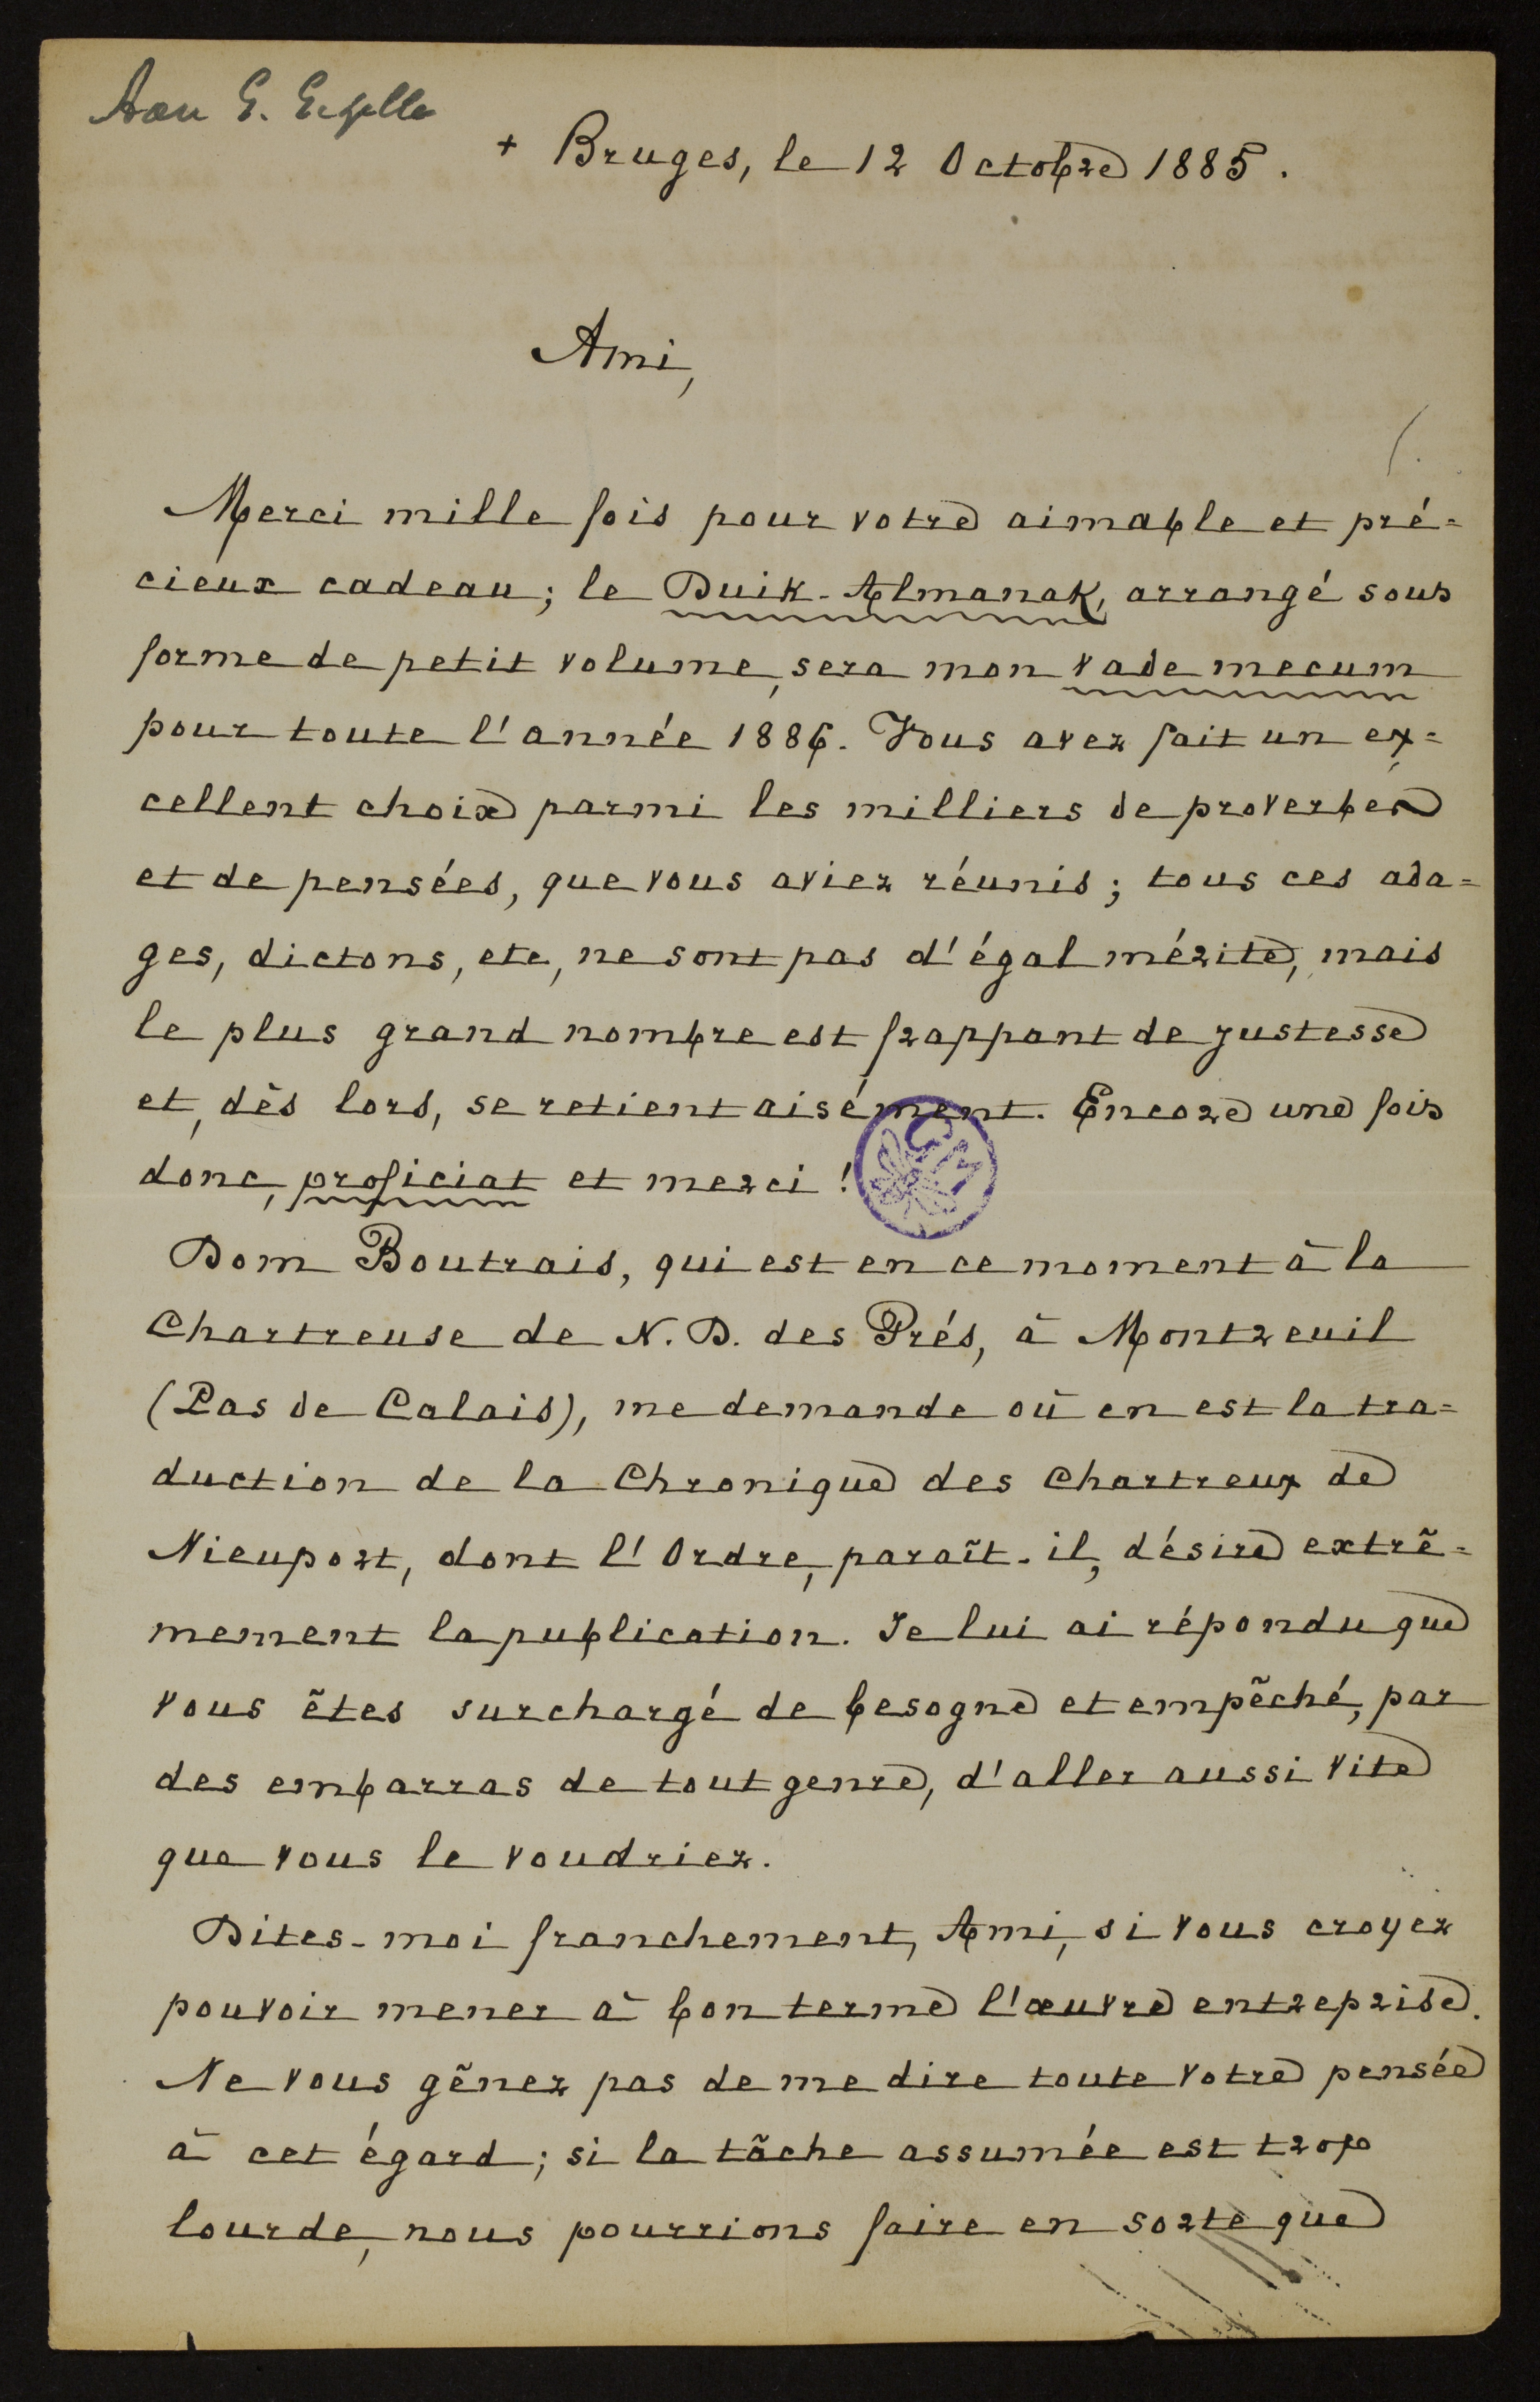 Aan G. Gezelle
+ Bruges, le 12 Octobre 1885.
Ami,
Merci mille fois pour votre aimable et pré=
cieux cadeau; le Duik-Almanak, arrangé sous
forme de petit volume, sera mon vade mecum
pour toute l'année 1886. Vous avez fait un ex=
cellent choix parmi les milliers de proverbes
et de pensées, que vous aviez réunis; tous ces ada=
ges, dictons, etc, ne sont pas d'égal mérite, mais
le plus grand nombre est frappant de justesse
et, dès lors, se retient aisément. Encore une fois
donc, proficiat et merci!
Dom Boutrais, qui est en ce moment à la
Chartreuse de N. D. des Prés, à Montreuil
(Pas de Calais), me demande où en est la tra=
duction de la Chronique des Chartreux de
Nieuport, dont l'Ordre, paraît-il, désire extrê=
mement la publication. Je lui ai répondu que
vous êtes surchargé de besogne et empêché, par
des embarras de tout genre, d'aller aussi vite
que vous le voudriez.
Dites-moi franchement, Ami, si vous croyez
pouvoir mener à bon terme l'œuvre entreprise.
Ne vous gênez pas de me dire toute votre pensée
à cet égard; si la tâche assumée est trop
lourde, nous pourrions faire en sorte que